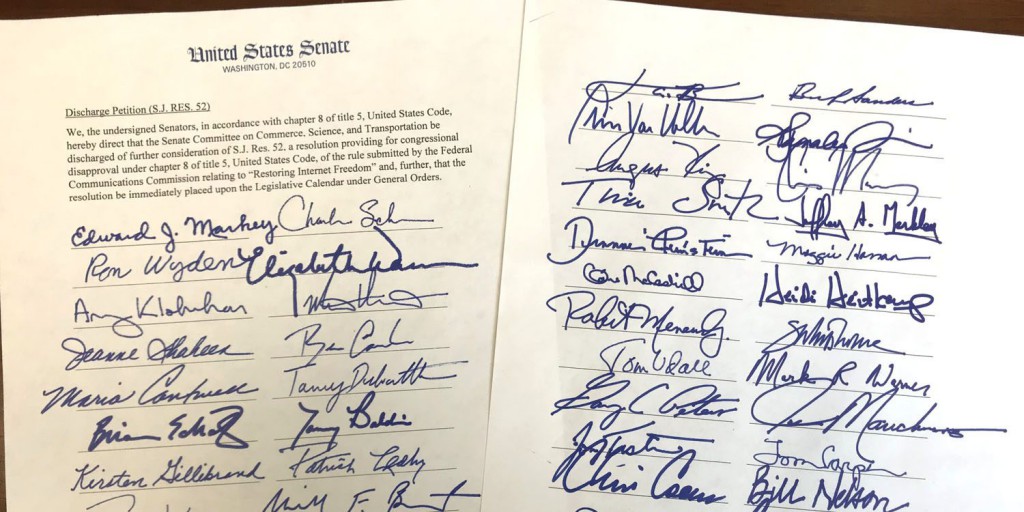 United States Senate
WASHINGTON, DC 20510
Discharge Petition (S.J. RES. 52)
We, the undersigned Senators, in accordance with chapter 8 of title 5, United States Code,
hereby direct that the Senate Committee on Commerce, Science, and Transportation be
discharged of further consideration of S.J. Res. 52, a resolution providing for congressional
disapproval under chapter 8 of title 5, United States Code, of the rule submitted by the Federal
Communications Commission relating to “Restoring Internet Freedom” and, further, that the
resolution be immediately placed upon the Legislative Calendar under General Orders.
Edward J. Markey
Ron Wyden Elizabeth Warren
Amy Klobuchar
Jeanne Shaheen
Maria Cantwell Tammy Duckworth
Brian Schatz Tammy Baldwin
Kirsten Gillibrand Patrick Leahy
Chris Van Hollen
Angus King
Tina Smith Jeffrey A. Merkley
Dianne Feinstein Maggie Hassan
Heidi Heitkamp
Robert Menendez
Tom Udall Mark R Warner
Gary C Peters
Tom Carper
Chris Coons Bill Nelson